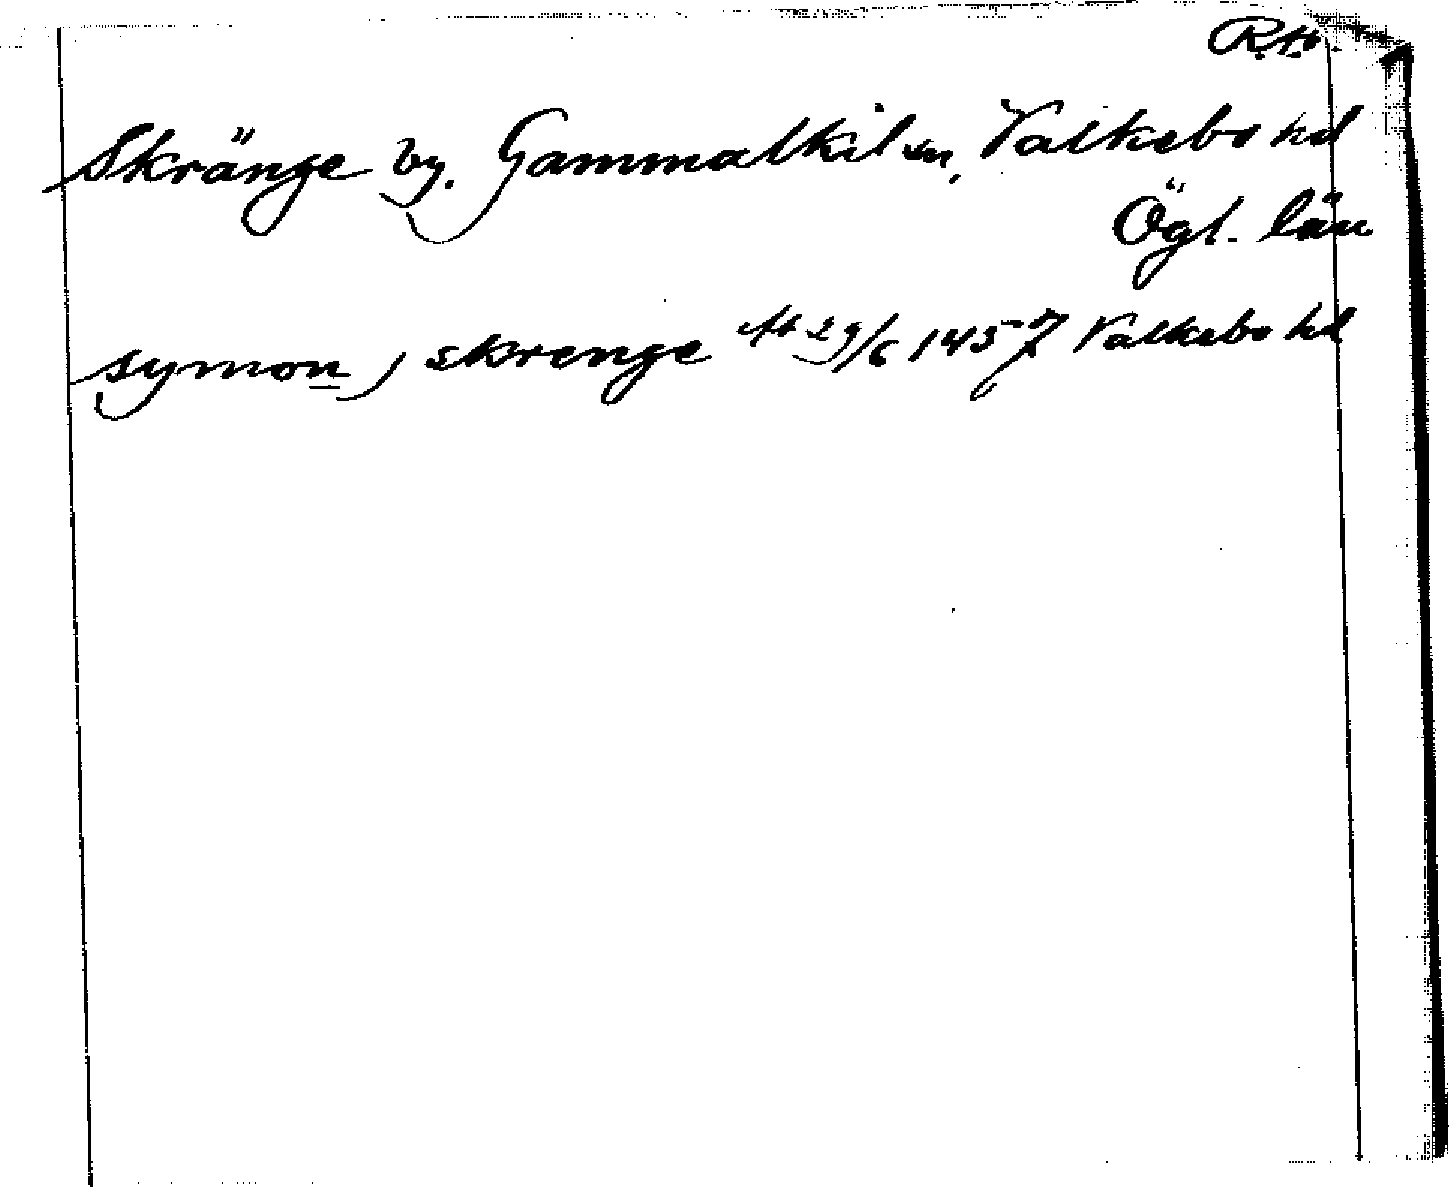 R.H.
Skränge by. Gammalkil sn, Valkebo hd
Ögl. län
symon j skrenge 29/6 1457 Valkebo hd